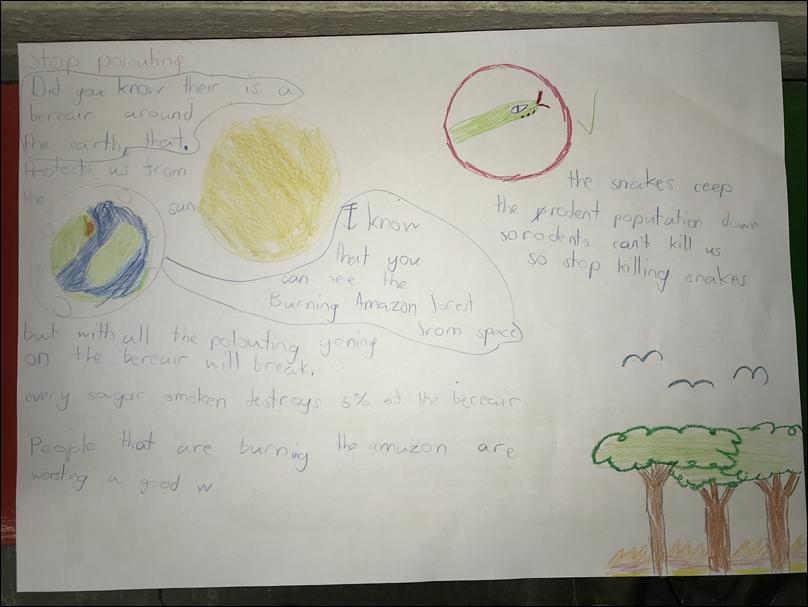 Stop polouting
Did you know their is a
bereair around
the earth, that.
Protects us from
the
sun
I know
that you
can see the
Burning Amazon forest
from space
but with all the polouting goning
on the bereair will break.
every sagar smoken testroys 5% of the bereair
People that are burning the amuzon are
warsting a good w
the snakes ceep
the rodent poputation down
so rodents can't kill us
so stop killing snakes